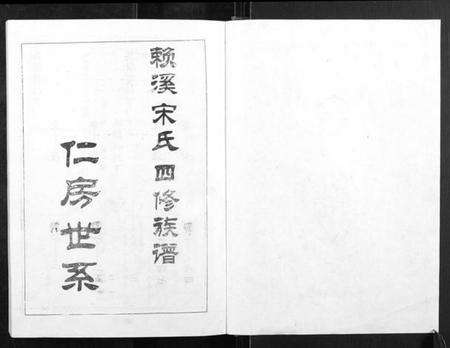 赖溪宋氏四修族谱
仁房世系